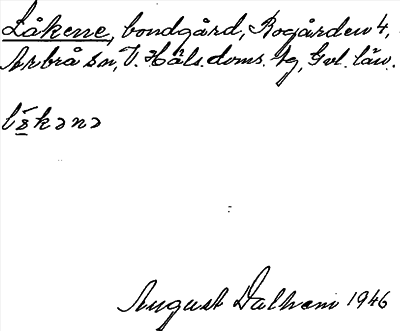 Låkene, bondgård, Rogården 4,
Arbrå sn, V. Häls. doms. tg, Gvl. län.
August Dalhem 1946